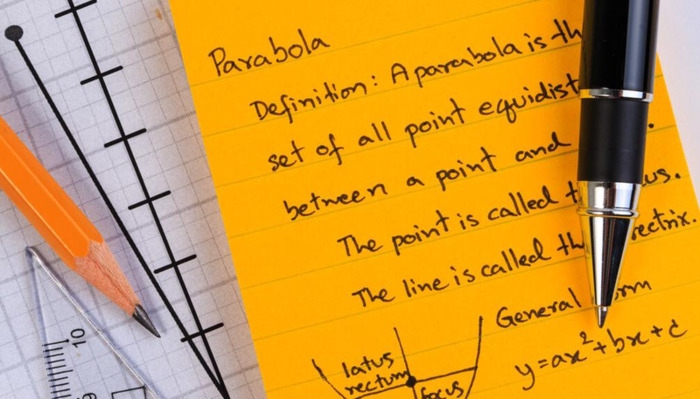 Parabola
Definition: A parabola is th
set of all point equidist
between a point and
The point is called t us.
The line is called th rectrix.
General rm
y=ax²+bx+c
latus
rectum
focus
10